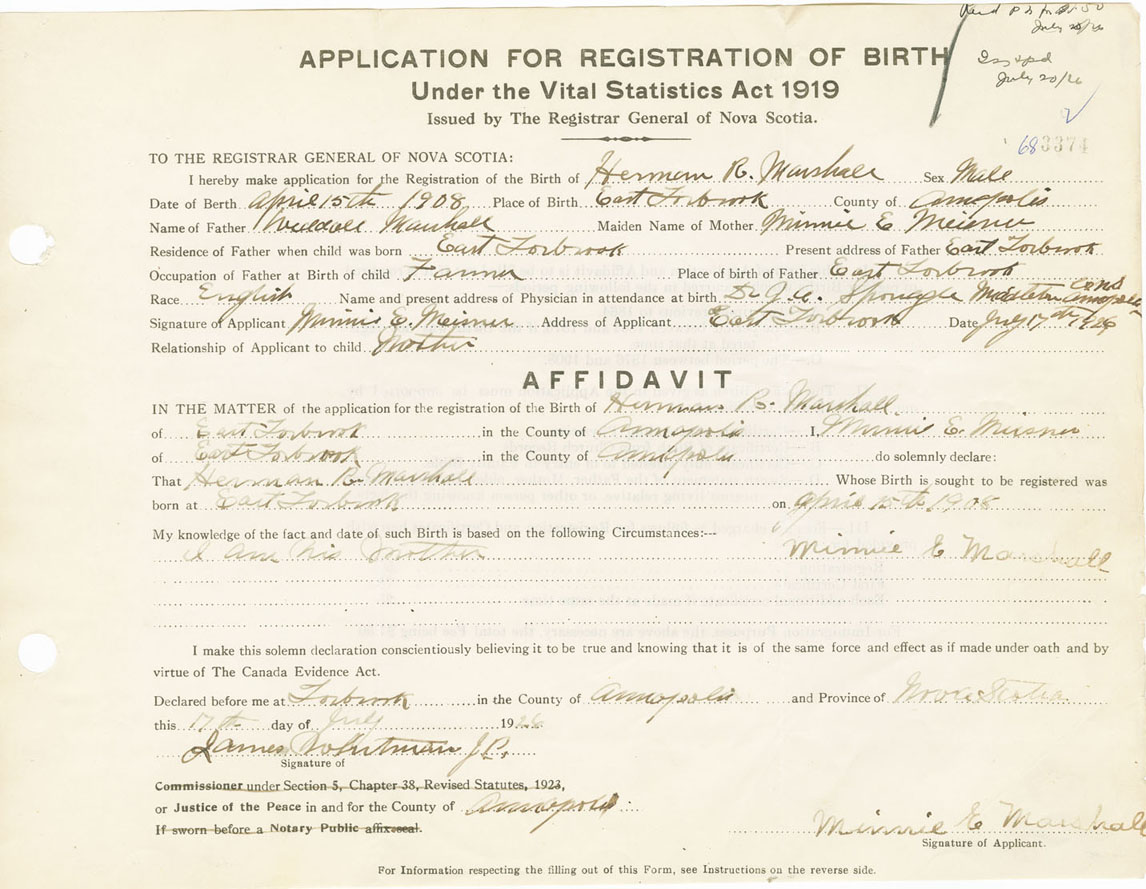 July 20/26
Issued
July 20/26
APPLICATION FOR REGISTRATION OF BIRTH
Under the Vital Statistics Act 1919
Issued by The Registrar General of Nova Scotia.
683374
TO THE REGISTRAR GENERAL OF NOVA SCOTIA:
I hereby make application for the Registration of the Birth of Herman R. Marshall Sex Male
Date of Berth April 15th 1908 Place of Birth East Torbrook County of Annapolis
Name of Father Marshall Maiden Name of Mother Minnie E Meisner
Residence of Father when child was born East Torbrook Present address of Father East Torbrook
Occupation of Father at Birth of child Farmer Place of birth of Father East Torbrook
Race English Name and present address of Physician in attendance at birth Dr J. A. Sponagle Middleton Annapolis
Signature of Applicant Minnie E. Meisner Address of Applicant East Torbrook Date July 17th 1926
Relationship of Applicant to child Mother
AFFIDAVIT
IN THE MATTER of the application for the registration of the Birth of Herman R. Marshall
of East Torbrook in the County of Annapolis I, Minnie E. Meisner
of East Torbrook in the County of Annapolis do solemnly declare:
That Herman R. Marshall Whose Birth is sought to be registered was
born at East Torbrook on April 15th 1908
My knowledge of the fact and date of such Birth is based on the following Circumstances:---
I am his Mother Minnie E Marshall
I make this solemn declaration conscientiously believing it to be true and knowing that it is of the same force and effect as if made under oath and by
virtue of The Canada Evidence Act.
Declared before me at Torbrook in the County of Annapolis and Province of Nova Scotia
this 17th day of July 1926
James Whitman J.P.
Signature of
Commissioner under Section 5, Chapter 38, Revised Statutes, 1923,
or Justice of the Peace in and for the County of Annapolis
If sworn before a Notary Public affix seal.
Minnie E Marshall
Signature of Applicant.
For Information respecting the filling out of this Form, see Instructions on the reverse side.